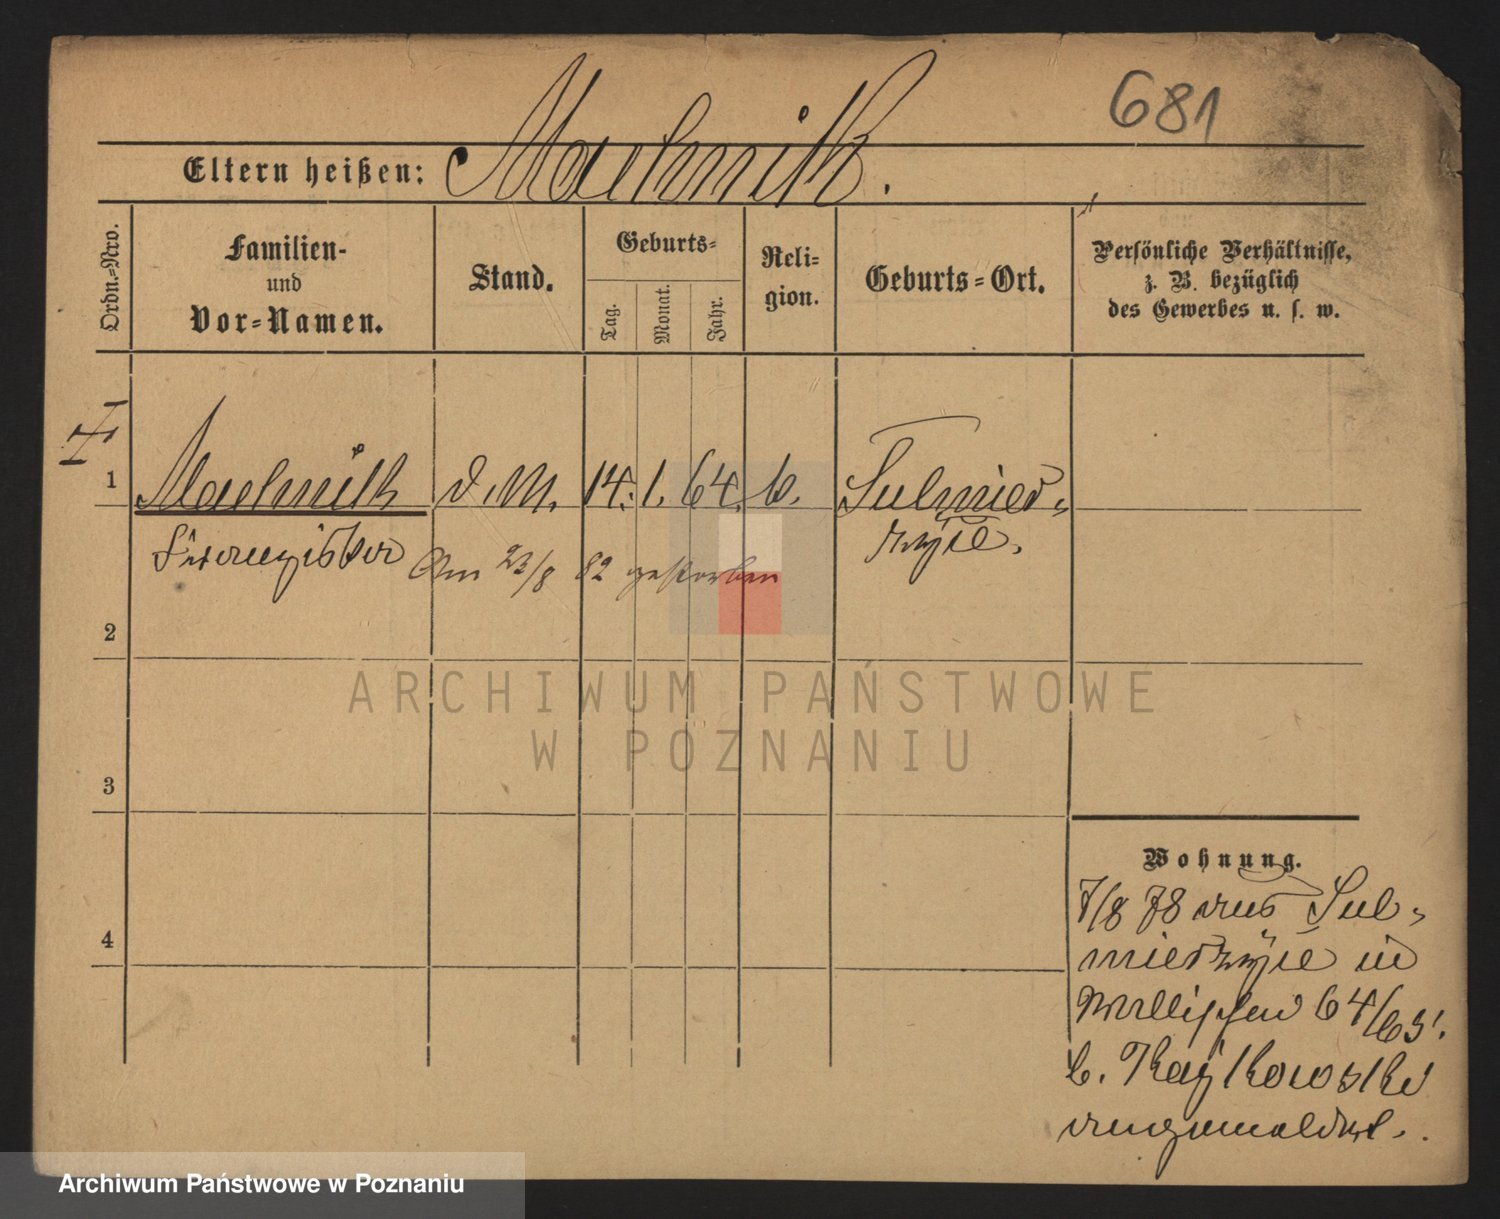 681
Eltern heißen: Machnik.
Ordn.-Nro.
Familien-
und
Vor-Namen.
Stand.
Geburts-
Tag.
Monat.
Jahr.
Reli-
gion.
Geburts-Ort.
Persönliche Verhältnisse,
z. B. bezüglich
des Gewerbes u. s. w.
1
Machnik d. M. 14. 1. 64. k. Sulmier-
Franziska
zyce.
Am 23/8 82 gestorben
2
3
4
Wohnung.
7/8 78 aus Sul-
mierzyce in
Wallischei 64/65.
b.
angemeldet.
ARCHIWUM PAŃSTWOWE
W POZNANIU
Archiwum Państwowe w Poznaniu